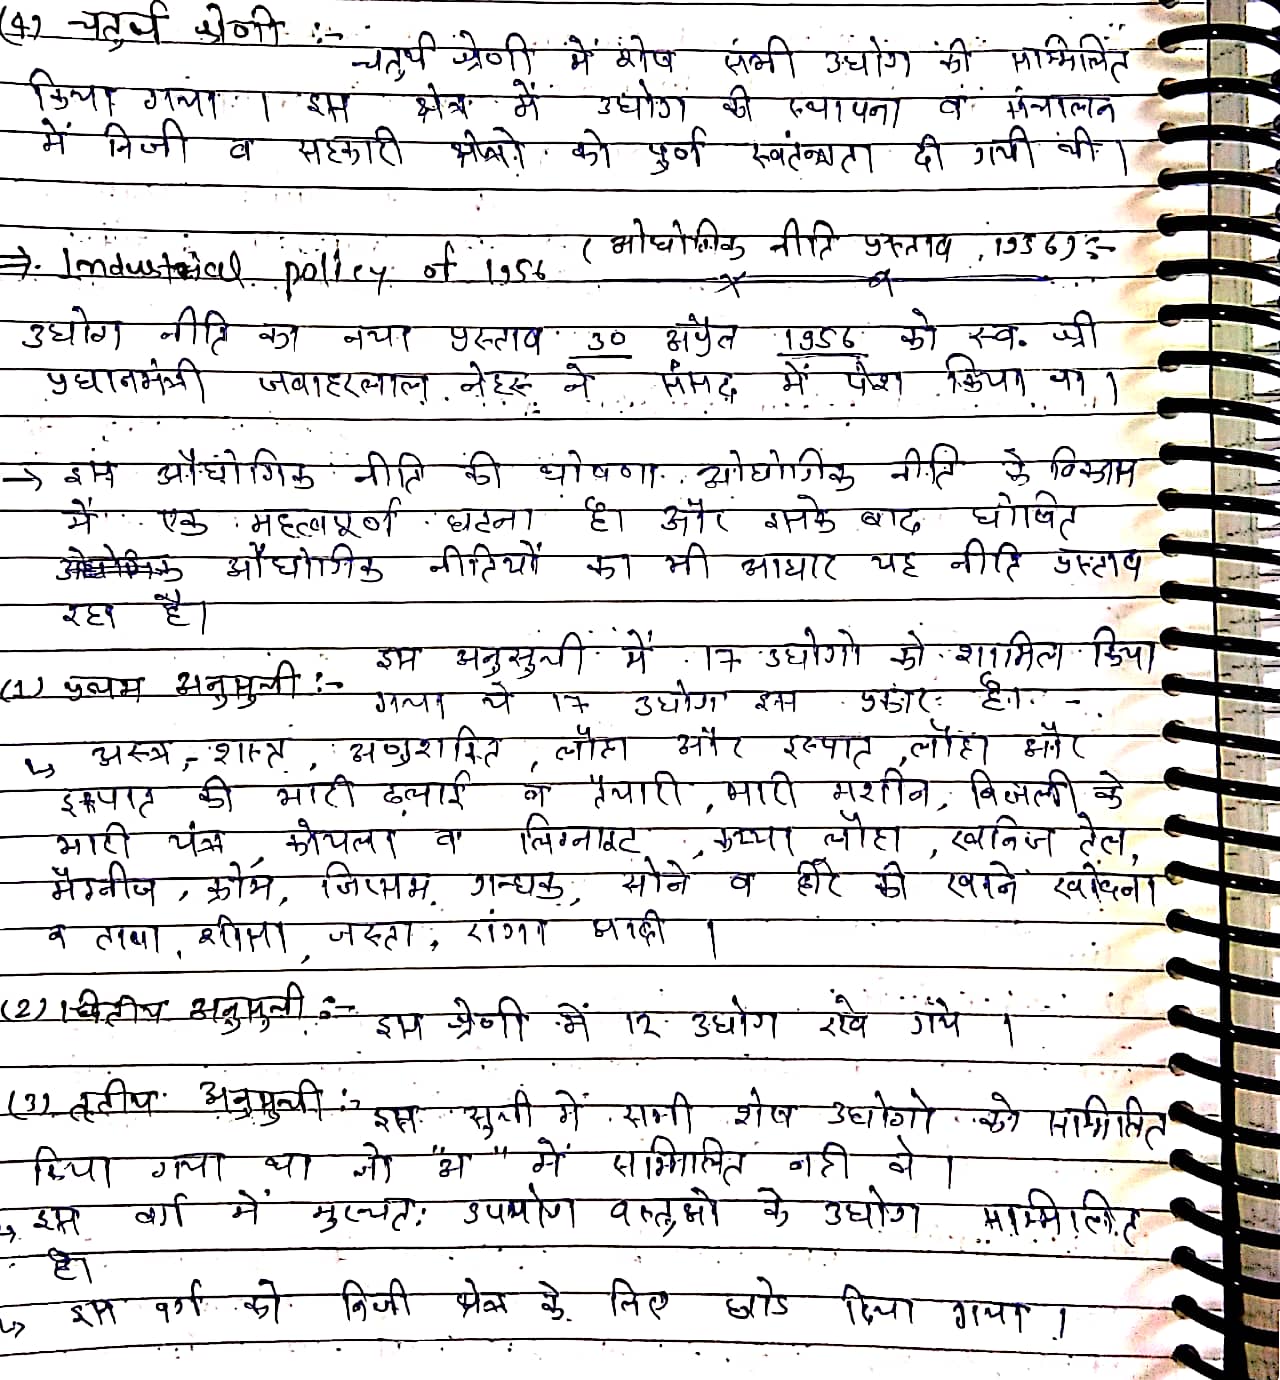 (4) चतुर्थ श्रेणी :-
चतुर्थ श्रेणी में शेष सभी उद्योग को सम्मिलित
किया गया । इस क्षेत्र में उद्योग की स्थापना व संचालन
में निजी व सहकारी क्षेत्रो को पुर्ण स्वतंन्त्रता दी गयी थी ।
⇒ Industrial policy of 1956 (ओद्योगिक नीति प्रस्ताव, 1956) :-
उद्योग नीति का नया प्रस्ताव 30 अप्रैल 1956 को स्व. श्री
प्रधानमंत्री जवाहरलाल नेहरू ने संसद में पेश किया था ।
→ इस औद्योगिक नीति की घोषणा ओद्योगिक नीति के विकास
में एक महत्वपूर्ण घटना है। और इसके बाद घोषित
औद्योगिक नीतियों का भी आधार यह नीति प्रस्ताव
रहा है।
(1) प्रथम अनुसुची :- इस अनुसुची में 17 उद्योगो को शामिल किया
गया ये 17 उद्योग इस प्रकार है। -
↳ अस्त्र-शस्त्र, अणुशक्ति, लौहा और इस्पात, लौहा और
इस्पात की भारी ढलाई व तैयारी, भारी मशीन, बिजली के
भारी यंत्र, कोयला व लिग्नाइट, कच्चा लौहा, खनिज तेल,
मैंग्नीज, क्रोम, जिप्सम, गन्धक, सोने व हीरे की खाने खोदना
व ताबा, शीसा, जस्ता, रांगा आदी ।
(2) द्वितीय अनुसुची :- इस श्रेणी में 12 उद्योग रखे गये ।
(3) तृतीय अनुसुची :- इस सुची में सभी शेष उद्योगो को सम्मिलित
किया गया था जो "अ" में सम्मिलित नही थे ।
↳ इस वर्ग में मुख्यत: उपभोग वस्तुओ के उद्योग सम्मिलित
है।
↳ इस वर्ग को निजी क्षेत्र के लिए छोड दिया गया ।